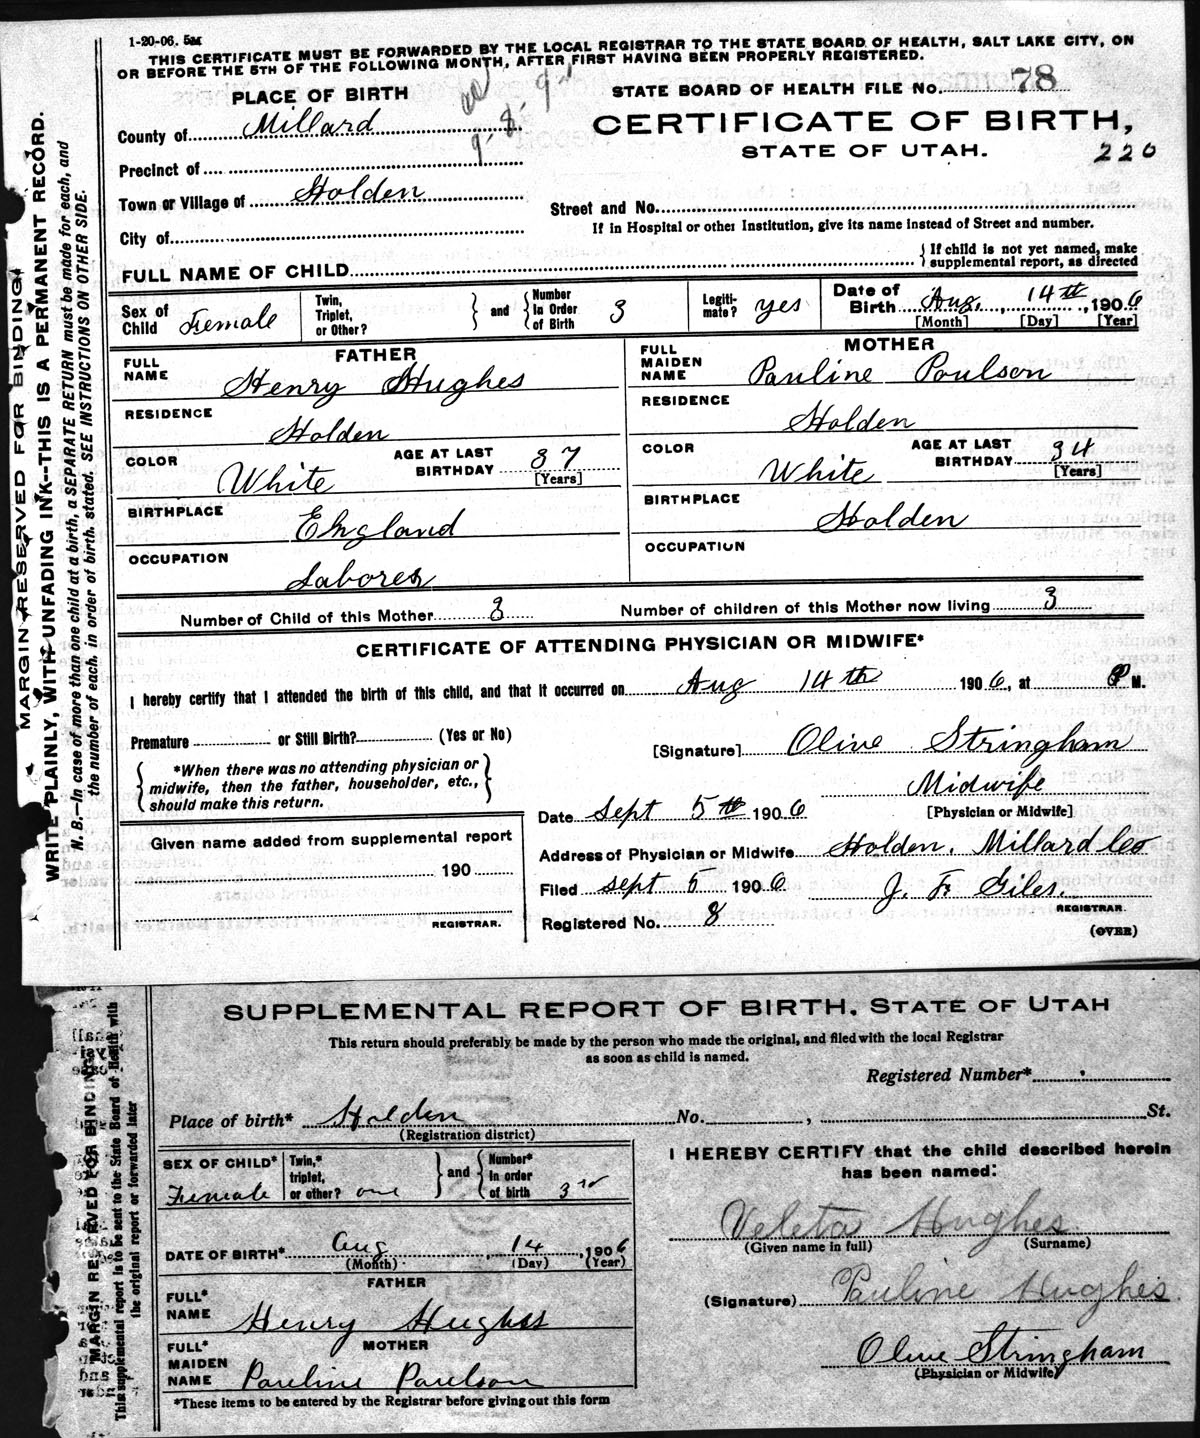 1-20-06. 5M
THIS CERTIFICATE MUST BE FORWARDED BY THE LOCAL REGISTRAR TO THE STATE BOARD OF HEALTH, SALT LAKE CITY, ON
OR BEFORE THE 5TH OF THE FOLLOWING MONTH, AFTER FIRST HAVING BEEN PROPERLY REGISTERED.
PLACE OF BIRTH
STATE BOARD OF HEALTH FILE No. 78
County of Millard
CERTIFICATE OF BIRTH,
STATE OF UTAH.
220
Precinct of
Town or Village of Holden
Street and No.
If in Hospital or other Institution, give its name instead of Street and number.
City of
FULL NAME OF CHILD
{ If child is not yet named, make
supplemental report, as directed
Sex of Child Female
Twin, Triplet, or Other? } and { Number In Order of Birth 3
Legiti-mate? yes
Date of Birth Aug. 14th, 1906
[Month] [Day] [Year]
FATHER
FULL NAME Henry Hughes
RESIDENCE Holden
COLOR White AGE AT LAST BIRTHDAY 37 [Years]
BIRTHPLACE England
OCCUPATION Laborer
MOTHER
FULL MAIDEN NAME Pauline Poulson
RESIDENCE Holden
COLOR White AGE AT LAST BIRTHDAY 34 [Years]
BIRTHPLACE Holden
OCCUPATION
Number of Child of this Mother 3 Number of children of this Mother now living 3
CERTIFICATE OF ATTENDING PHYSICIAN OR MIDWIFE*
I hereby certify that I attended the birth of this child, and that it occurred on Aug 14th 1906, at P M.
Premature or Still Birth? (Yes or No)
{ *When there was no attending physician or
midwife, then the father, householder, etc.,
should make this return. }
[Signature] Olive Stringham
Midwife
[Physician or Midwife]
Date Sept 5th 1906
Given name added from supplemental report
190
REGISTRAR.
Address of Physician or Midwife Holden, Millard Co
Filed Sept 5 1906 J. F. Giles.
REGISTRAR.
Registered No. 8
(OVER)
MARGIN RESERVED FOR BINDING.
WRITE PLAINLY, WITH UNFADING INK--THIS IS A PERMANENT RECORD.
N. B.—In case of more than one child at a birth, a SEPARATE RETURN must be made for each, and
the number of each, in order of birth, stated. SEE INSTRUCTIONS ON OTHER SIDE.
SUPPLEMENTAL REPORT OF BIRTH, STATE OF UTAH
This return should preferably be made by the person who made the original, and filed with the local Registrar
as soon as child is named.
Registered Number*
Place of birth* Holden No. , St.
(Registration district)
SEX OF CHILD* Female
Twin,* triplet, or other? one } and { Number* in order of birth 3rd
DATE OF BIRTH* Aug, 14, 1906
(Month) (Day) (Year)
FATHER
FULL* NAME Henry Hughes
MOTHER
FULL* MAIDEN NAME Pauline Paulson
*These items to be entered by the Registrar before giving out this form
I HEREBY CERTIFY that the child described herein
has been named:
Veleta Hughes
(Given name in full) (Surname)
(Signature) Pauline Hughes
Olive Stringham
(Physician or Midwife)
MARGIN RESERVED FOR BINDING.
This supplemental report is to be sent to the State Board of Health with
the original report or forwarded later